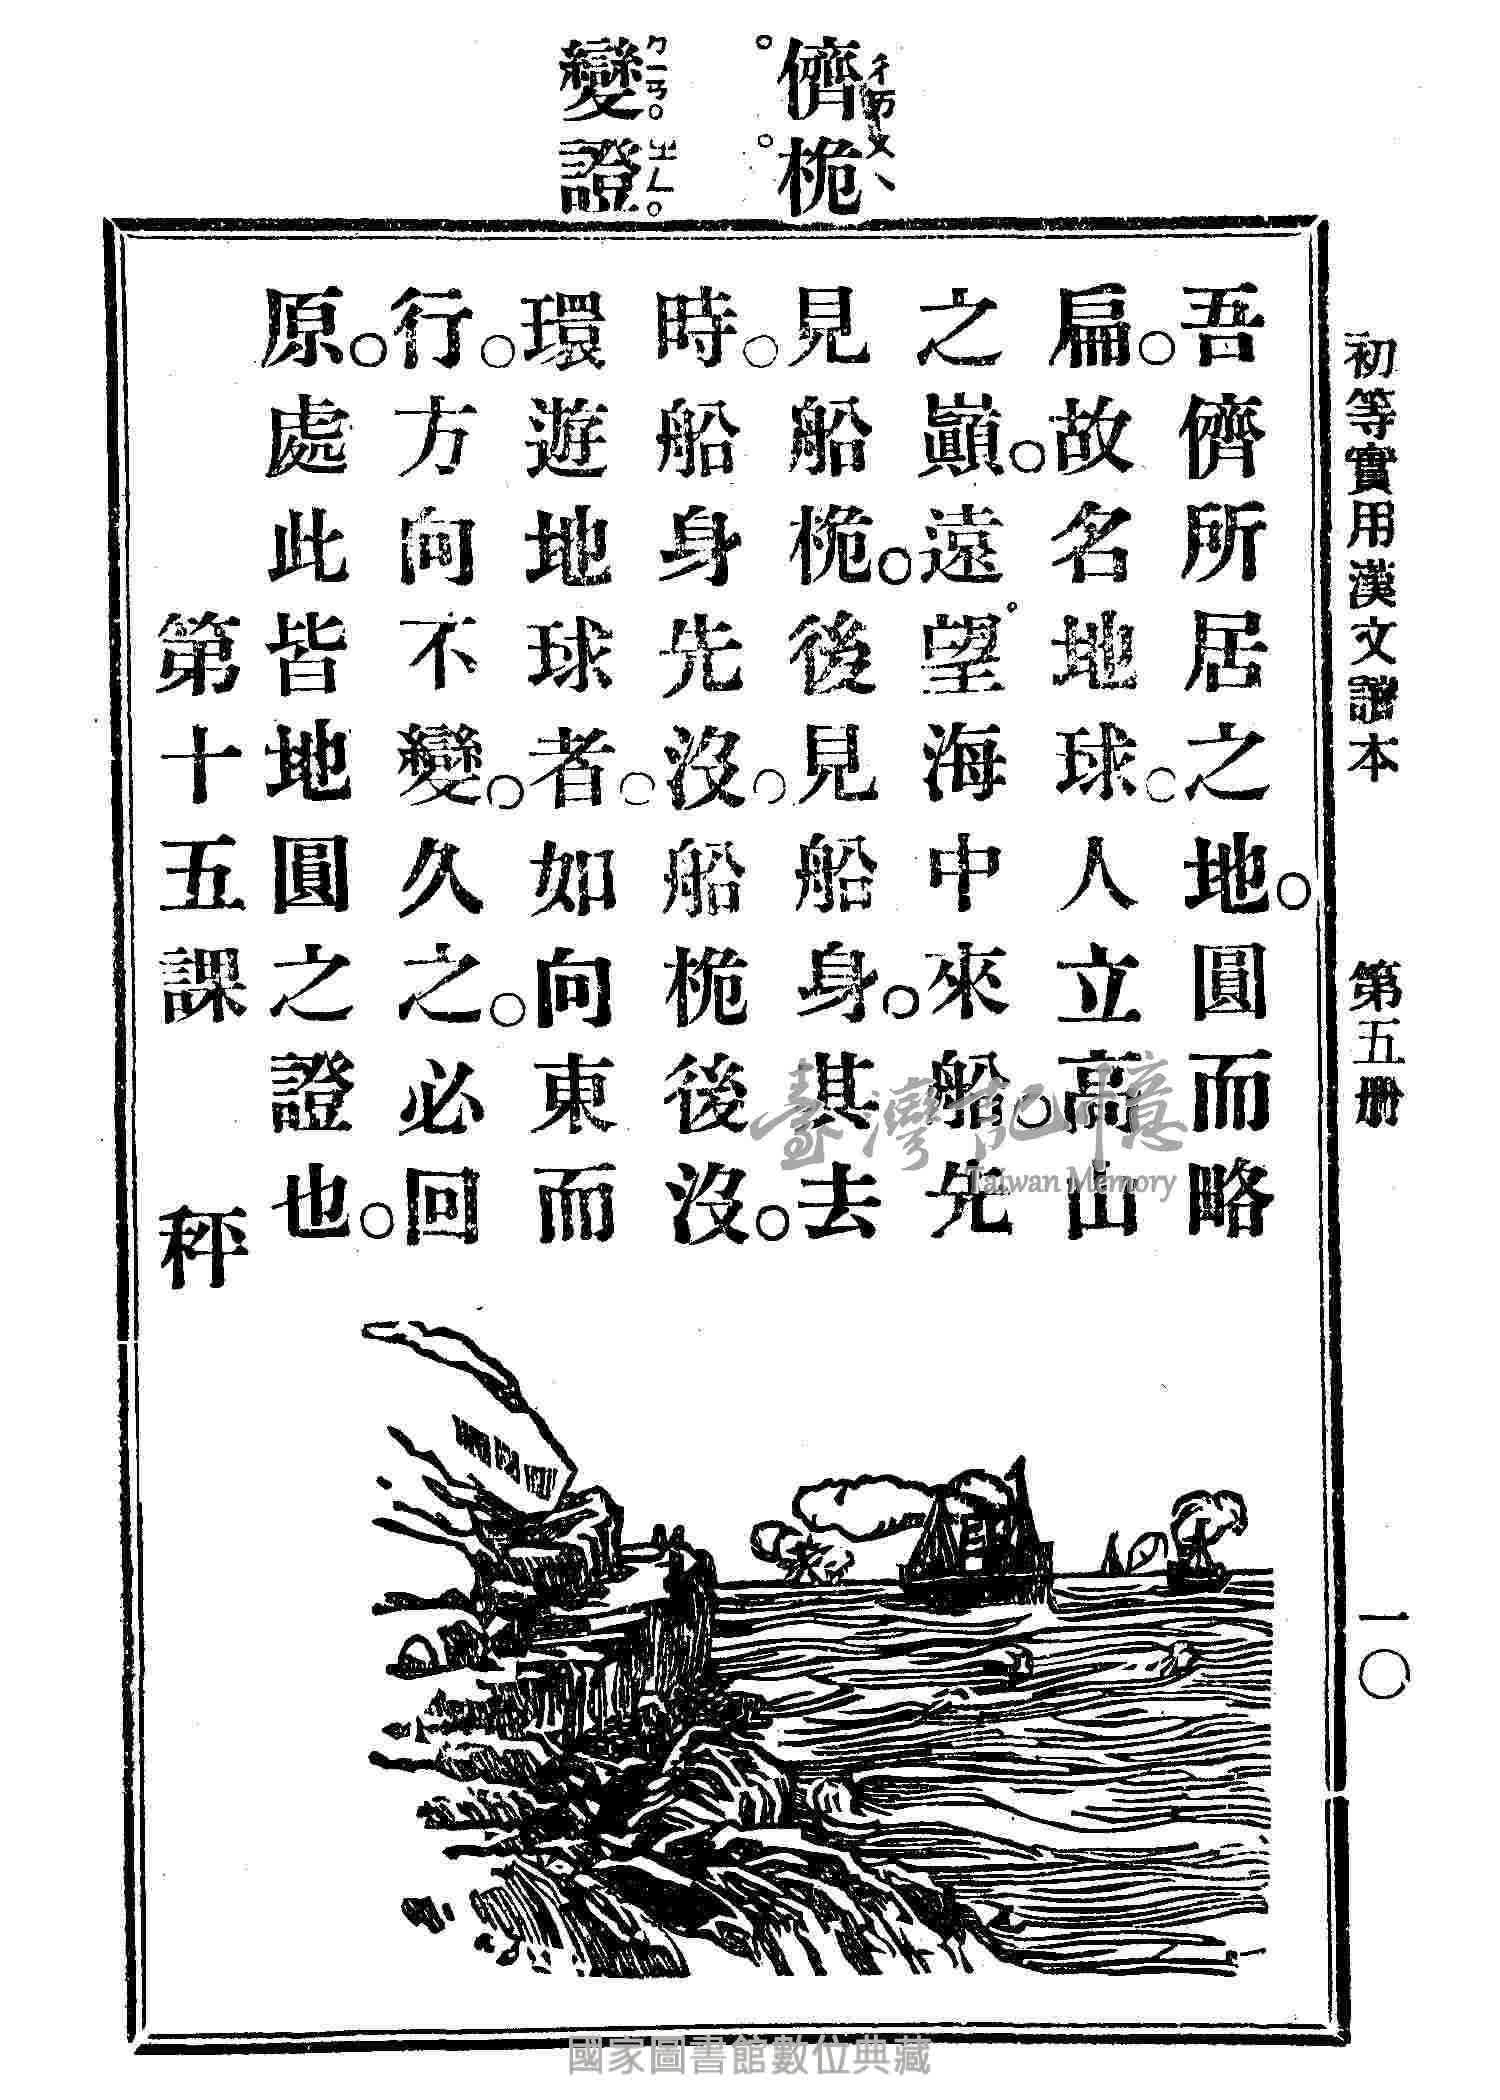 初等實用漢文讀本 第五册 一〇
儕 ㄔㄞ
桅 ㄨㄟ
變 ㄅㄧㄢ
證 ㄓㄥ
吾儕所居之地。圓而略
扁。故名地球。人立高山
之巔。遠望海中來船。先
見船桅。後見船身。其去
時。船身先沒。船桅後沒。
環遊地球者。如向東而
行。方向不變。久之。必回
原處。此皆地圓之證也。
第十五課 秤
臺灣記憶
Taiwan Memory
國家圖書館數位典藏